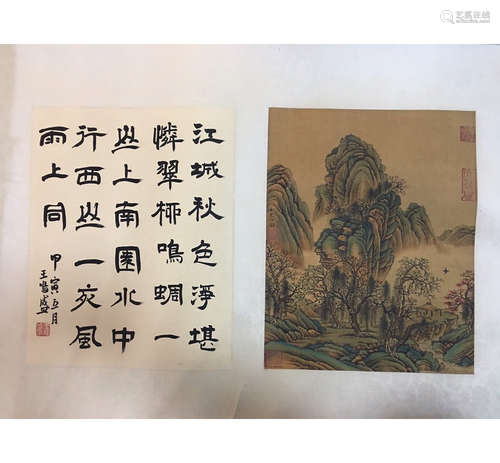 江城秋色淨堪
憐翠柳鳴蜩一
上南園水中
行西一夜風
雨上同
甲寅五月
王
艺狐在线